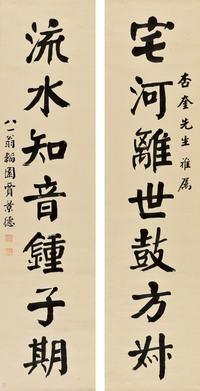 杏奎先生雅屬
宅河離世鼓方叔
流水知音鍾子期
八一翁韜園賈景德